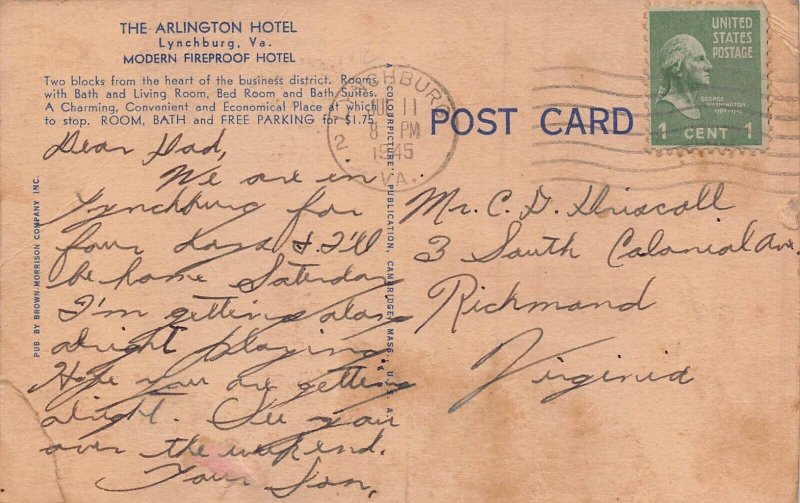 THE ARLINGTON HOTEL
Lynchburg, Va.
MODERN FIREPROOF HOTEL
Two blocks from the heart of the business district. Rooms
with Bath and Living Room, Bed Room and Bath Suites.
A Charming, Convenient and Economical Place at which
to stop. ROOM, BATH and FREE PARKING for $1.75.
Dear Dad,
We are in
Lynchburg for
four days & I'll
be home Saterday
I'm getting along
alright playing.
Hope you are getting
alright. See you
over the weekend.
Your Son,
PUB. BY BROWN-MORRISON COMPANY INC.
A COLOURPICTURE PUBLICATION, CAMBRIDGE, MASS., U.S.A.
11
8 PM
1945
VA.
2
POST CARD
UNITED
STATES
POSTAGE
GEORGE
WASHINGTON
1 CENT 1
Mr. C. D. Driscoll
3 South Colonial Ave.
Richmond
Virginia